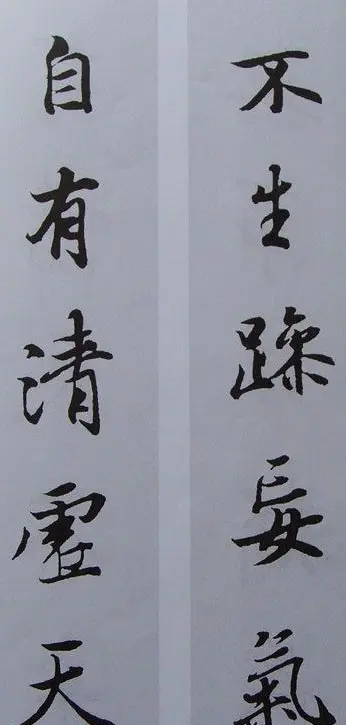 不生躁妄氣
自有清虛天